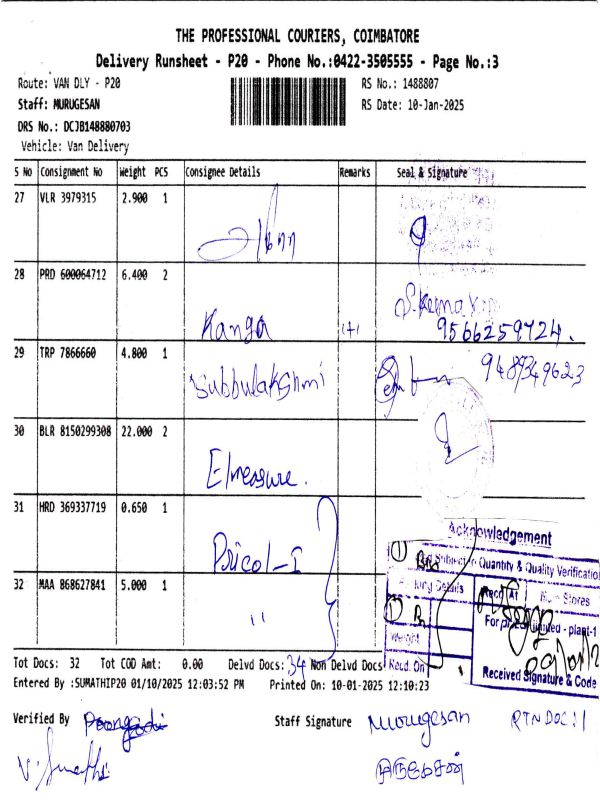 THE PROFESSIONAL COURIERS, COIMBATORE
Delivery Runsheet - P20 - Phone No.:0422-3505555 - Page No.:3
Route: VAN DLY - P20 RS No.: 1488807
Staff: MURUGESAN RS Date: 10-Jan-2025
DRS No.: DCJB148880703
Vehicle: Van Delivery
S No Consignment No Weight PCS Consignee Details Remarks Seal & Signature
27 VLR 3979315 2.900 1
28 PRD 600064712 6.400 2
Kanga 1+1 9566259724.
29 TRP 7866660 4.800 1
Subbulakshmi
30 BLR 8150299308 22.000 2
Elmeasure.
31 HRD 369337719 0.650 1
Pricol-I
Acknowledgement
Quantity & Quality Verification
32 MAA 868627841 5.000 1
"
Details Recd. At Stores
For limited - plant-1
Weight
Recd. On
Received Signature & Code
Tot Docs: 32 Tot COD Amt: 0.00 Delvd Docs: 34 Non Delvd Docs
Entered By :SUMATHIP20 01/10/2025 12:03:52 PM Printed On: 10-01-2025 12:10:23
Verified By Staff Signature Murugesan RTNDOC:1
முருகேசன்